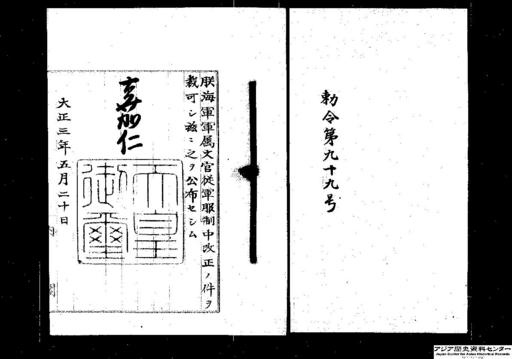 勅令第九十九号
朕海軍軍属文官従軍服制中改正ノ件ヲ
裁可シ茲ニ之ヲ公布セシム
嘉仁
天皇御璽
大正三年五月二十日
内閣
アジア歴史資料センター
Japan Center for Asian Historical Records